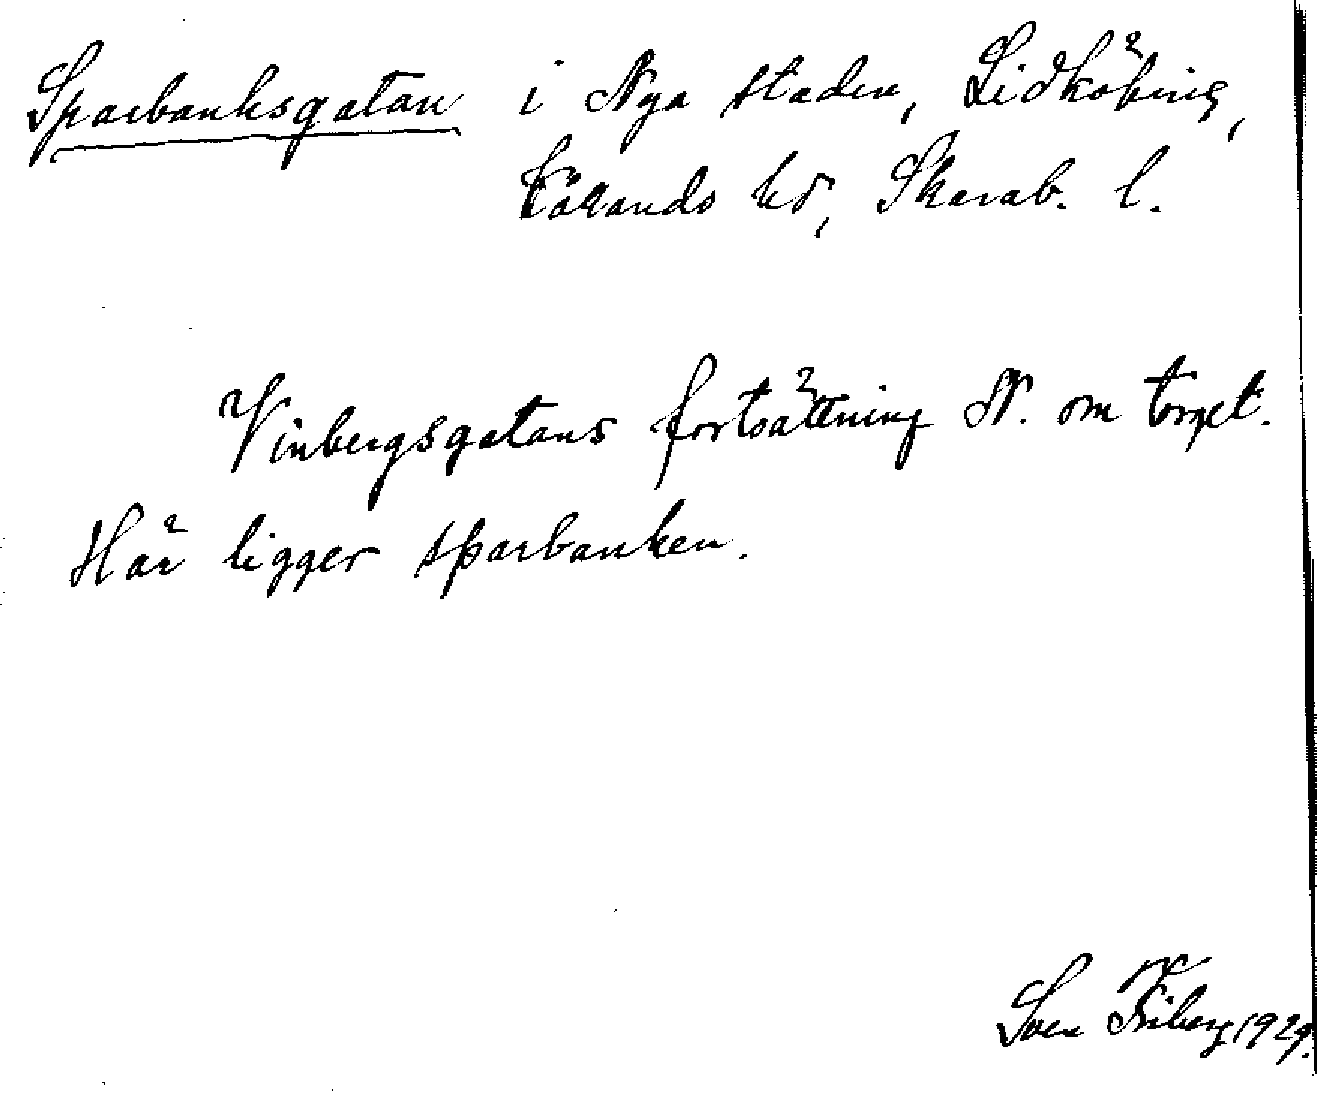 Sparbanksgatan i Nya staden, Lidköping,
Kållands hd, Skarab. l.
Vinbergsgatans fortsättning N. om torget.
Här ligger sparbanken.
Sven Friberg 1929.